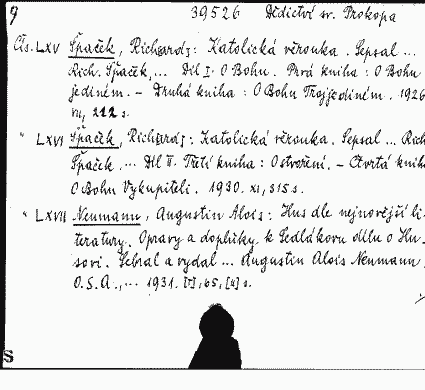 9 39526 Dědictví sv. Prokopa
Čís. LXV Špaček, Richard: Katolická věrouka. Sepsal ...
Rich. Špaček, ... Díl I. O Bohu. Prvá kniha: O Bohu
jediném. – Druhá kniha: O Bohu Trojjediném. 1926
VII, 212 s.
" LXVI Špaček, Richard: Katolická věrouka. Sepsal ... Rich
Špaček. ... Díl II. Třetí kniha: O stvoření. – Čtvrtá knih
O Bohu Vykupiteli. 1930. XI, 315 s.
" LXVII Neumann, Augustin Alois: Hus dle nejnovější li-
teratury. Opravy a doplňky k Sedlákovu dílu o Hu-
sovi. Sebral a vydal ... Augustin Alois Neumann,
O.S.A., ... 1931. [I], 65, [4] s.
S